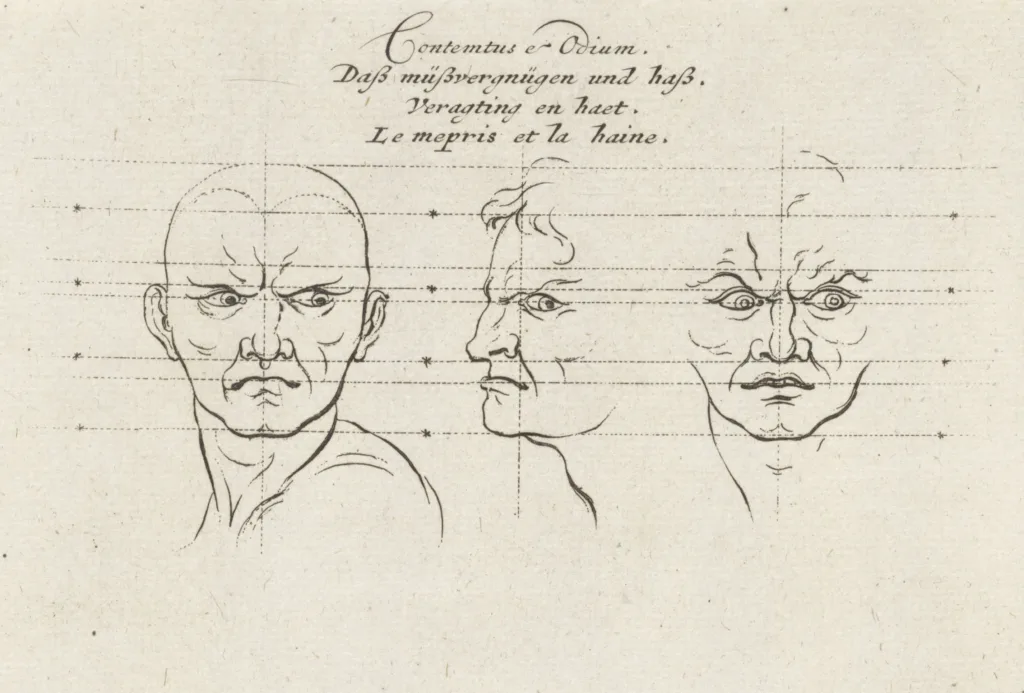 Contemtus & Odium.
Daß müßvergnügen und haß.
Veragting en haet.
Le mepris et la haine.